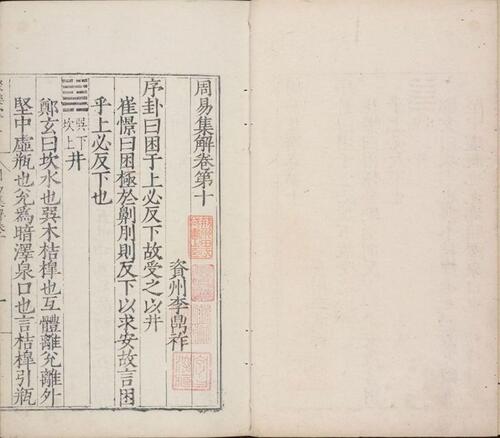 周易集解卷第十
資州李鼎祚
序卦曰困于上必反下故受之以井
崔憬曰困極於劓刖則反下以求安故言困
乎上必反下也
巽下
坎上
井
鄭玄曰坎水也巽木桔槹也互體離兌離外
堅中虛瓶也兌為暗澤泉口也言桔槹引瓶